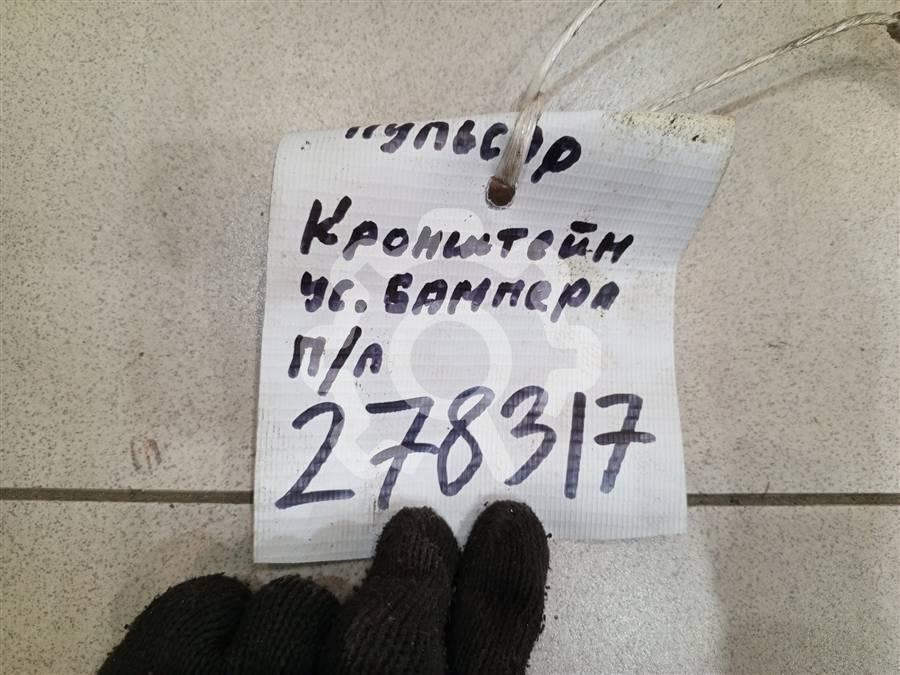 Пульсар
Кронштейн
ус. Бампера
П/Л
278317